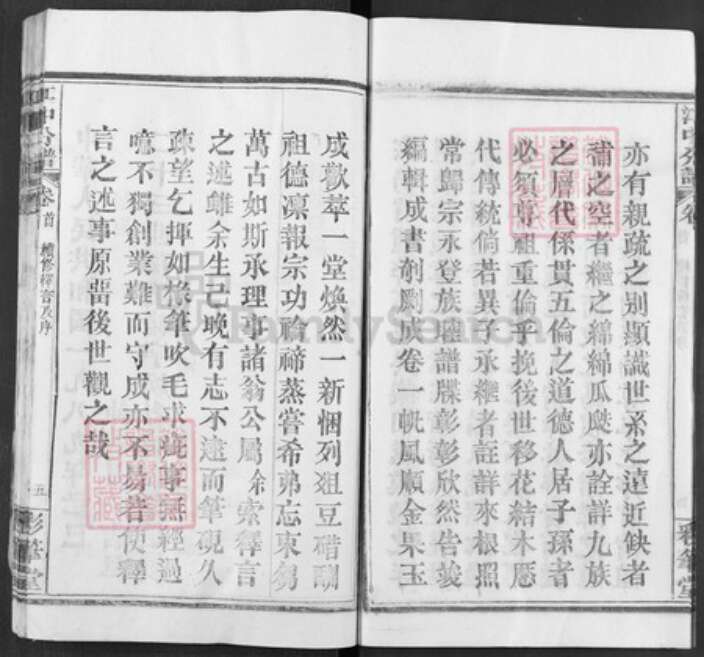 亦有親疏之別顯識世系之遠近缺者
補之空者繼之綿綿瓜瓞亦詮詳九族
之層代係貫五倫之道德人居子孫者
必須尊祖重倫乎挽後世移花結木應
代傳統倘若異子承繼者註詳來根照
常歸宗永登族譜牒彰彰欣然告竣
編輯成書剞劂成卷一帆風順金果玉
成歡萃一堂煥然一新悃列俎豆醋酬
祖德凜報宗功禴禘蒸嘗希弗忘東芻
萬古如斯承理事諸翁公屬余索釋言
之述雖余生已晚有志不逮而筆硯久
疎望乞揮如椽筆吹毛求疵事無經過
噫不獨創業難而守成亦不易若使釋
言之述事原啚後世觀之哉
卷首 續修釋言及序
五
彩華堂
FamilySearch